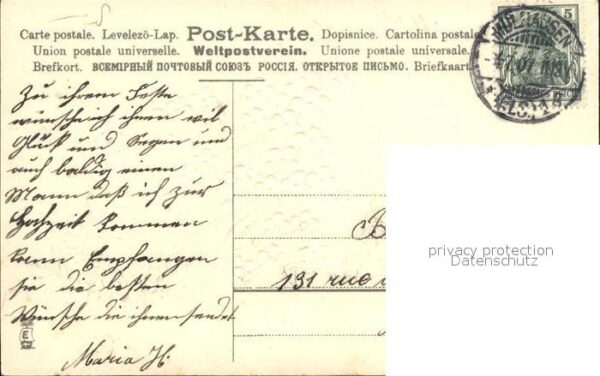 Carte postale. Levelező-Lap. Post-Karte. Dopisnice. Cartolina postale
Union postale universelle. Weltpostverein. Unione postale universale.
Brefkort. ВСЕМІРНЫЙ ПОЧТОВЫЙ СОЮЗЪ РОССІЯ. ОТКРЫТОЕ ПИСЬМО. Briefkaart
5
Zu ihrem Feste
wünsche ich ihnen viel
Glück und Segen und
auch baldig einen
Mann daß ich zur
Hochzeit kommen
kann Empfangen
sie die besten
Wünsche die ihnen sendet
Maria H.
B
131 rue
privacy protection
Datenschutz
E